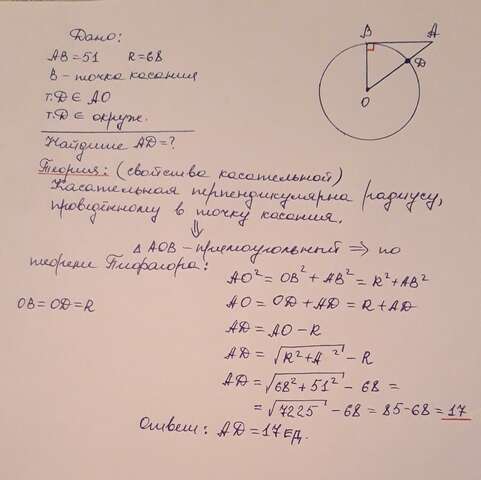 Дано:
AB=51 R=68
B - точка касания
т.D ∈ AO
т.D ∈ окруж.
Найдите AD=?
Теория: (свойства касательной)
Касательная перпендикулярна радиусу,
проведённому в точку касания.
⇓
△ AOB - прямоугольный ⇒ по
теореме Пифагора:
AO² = OB² + AB² = R² + AB²
OB = OD = R
AO = OD + AD = R + AD
AD = AO - R
AD = √(R² + A ²) - R
AD = √(68² + 51²) - 68 =
= √7225 - 68 = 85 - 68 = 17
Ответ: AD = 17 ед.
B
A
D
O